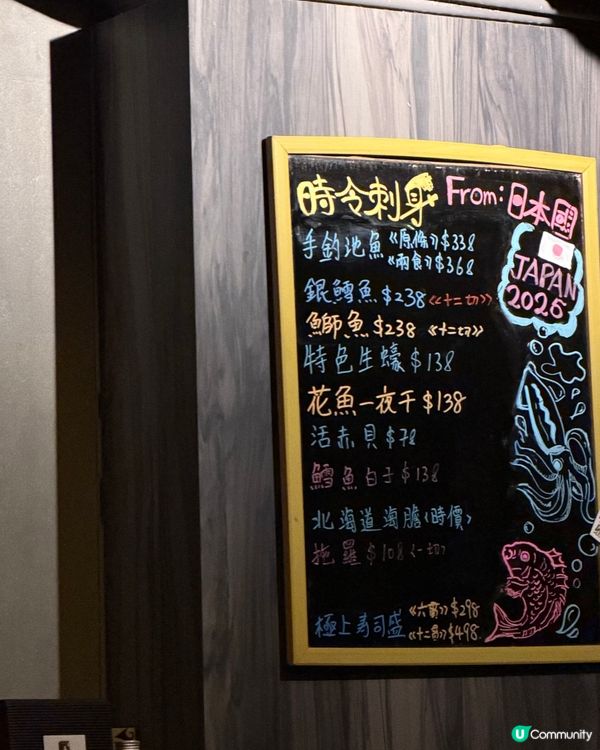 時令刺身 From: 日本國
JAPAN
2025
手釣池魚《原條》$338
《兩食》$368
銀鱈魚 $238 《十二切》
鰤魚 $238 《十二切》
特色生蠔 $138
花魚一夜干 $138
活赤貝 $78
鱈魚白子 $138
北海道海膽〈時價〉
拖羅 $108 〈一切〉
極上壽司盛 《六貫》$298
《十二貫》$498
U Community